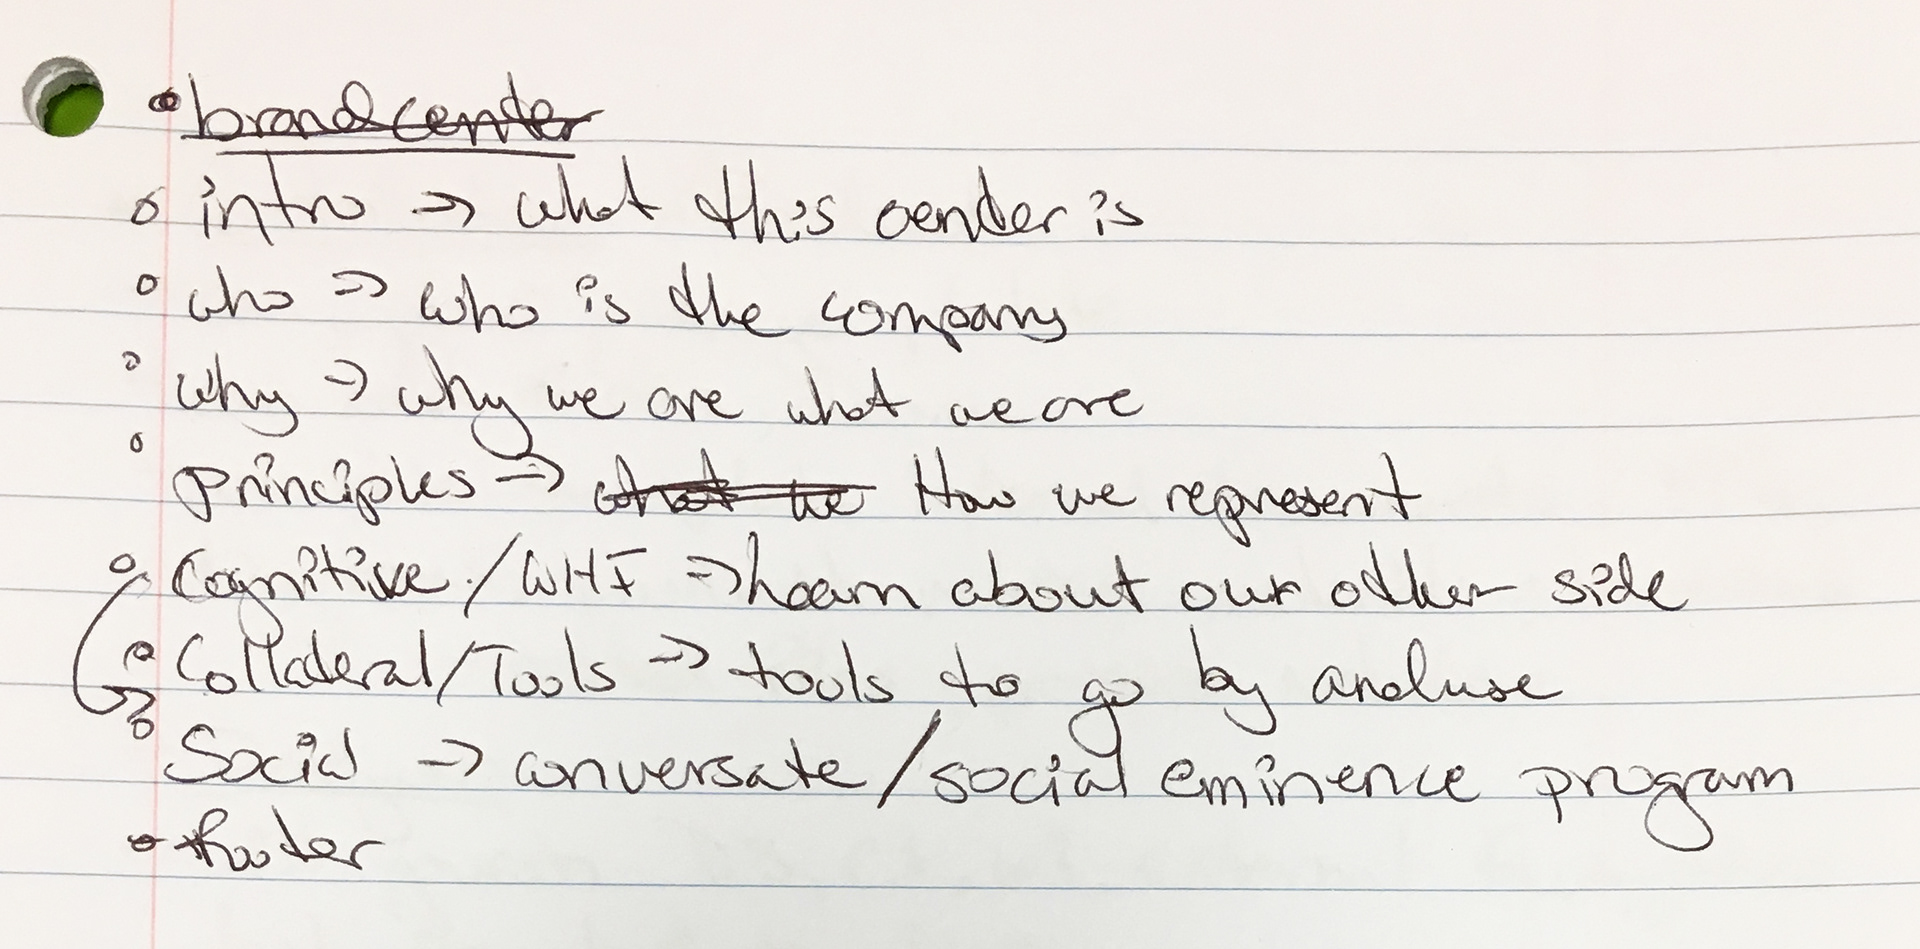 brand center
intro → what this center is
who → who is the company
why → why we are what we are
principles → what we How we represent
Cognitive / WHI → learn about our other side
Collateral/Tools → tools to go by and use
Social → conversate/social eminence program
footer